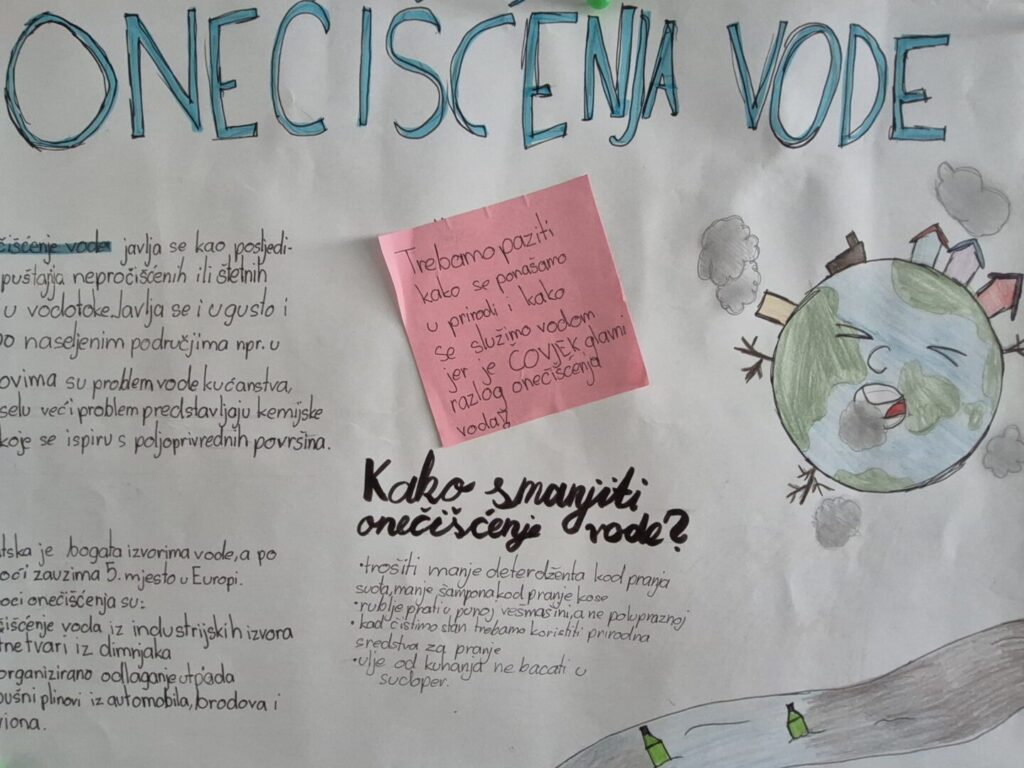 ONEČIŠĆENJA VODE
čišćenje voda javlja se kao posljedi-
puštanja nepročišćenih ili štetnih
u vodotoke. Javlja se i u gusto i
o naseljenim područjima npr. u
ovima su problem vode kućanstva,
selu veći problem predstavljaju kemijske
koje se ispiru s poljoprivrednih površina.
tska je bogata izvorima vode, a po
oći zauzima 5. mjesto u Europi.
oci onečišćenja su:
išćenje voda iz industrijskih izvora
tne tvari iz dimnjaka
organizirano odlaganje otpada
pušni plinovi iz automobila, brodova i
viona.
Trebamo paziti
kako se ponašamo
u prirodi i kako
se služimo vodom
jer je COVJEK glavni
razlog onečišćenja
voda
Kako smanjiti
onečišćenje vode?
•trošiti manje deterdženta kod pranja
suđa, manje šampona kod pranje kose
•rublje prati u punoj vešmašini, a ne polupraznoj
•kad čistimo stan trebamo koristiti prirodna
sredstva za pranje
•ulje od kuhanja ne bacati u
sudoper.